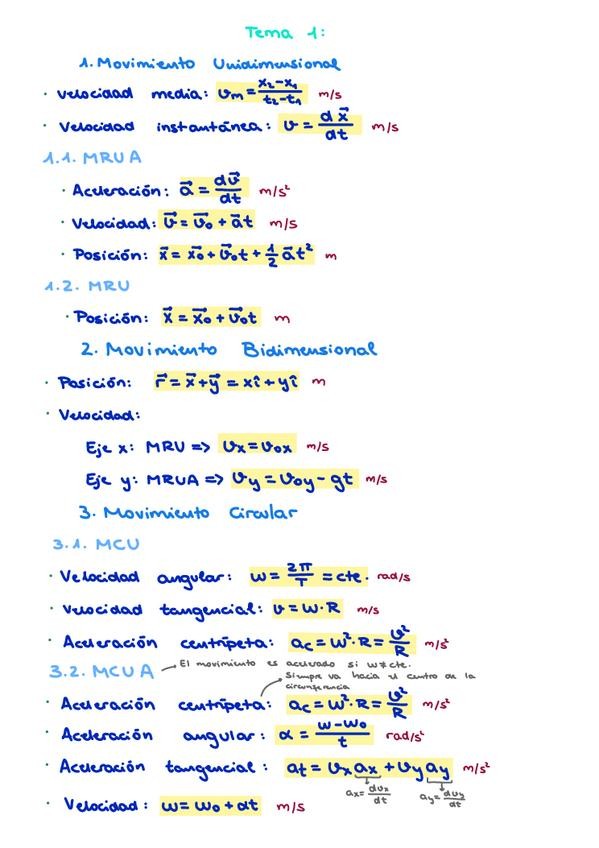 Tema 1:
1. Movimiento Unidimensional
· Velocidad media: vₘ = x₂-x₁/t₂-t₁ m/s
· Velocidad instantánea: v = dx⃗/dt m/s
1.1. MRUA
· Aceleración: a⃗ = dv⃗/dt m/s²
· Velocidad: v⃗ = v⃗₀ + a⃗t m/s
· Posición: x⃗ = x⃗₀ + v⃗₀t + 1/2 a⃗t² m
1.2. MRU
· Posición: x⃗ = x⃗₀ + v⃗₀t m
2. Movimiento Bidimensional
· Posición: r⃗ = x⃗ + y⃗ = xî + yî m
· Velocidad:
Eje x: MRU => vx = v₀x m/s
Eje y: MRUA => vy = v₀y - gt m/s
3. Movimiento Circular
3.1. MCU
· Velocidad angular: w = 2π/T = cte. rad/s
· Velocidad tangencial: v = w·R m/s
· Aceleración centrípeta: ac = w²·R = v²/R m/s²
3.2. MCUA → El movimiento es acelerado si w ≠ cte.
Siempre va hacia el centro de la
circunferencia
· Aceleración centrípeta: ac = w²·R = v²/R m/s²
· Aceleración angular: α = w-w₀/t rad/s²
· Aceleración tangencial: at = vx ax + vy ay m/s²
ax = dvx/dt ay = dvy/dt
· Velocidad: w = w₀ + αt m/s